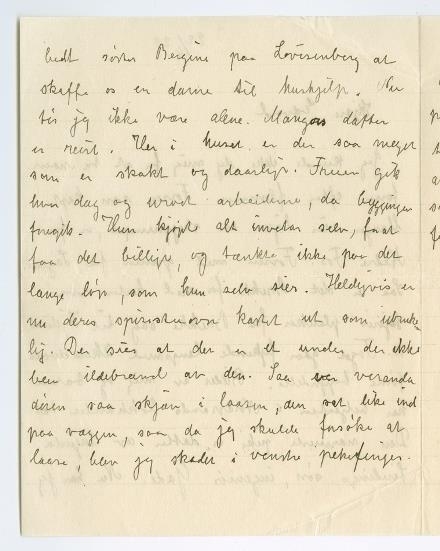 bedt søster Bergine paa Lovisenberg at
skaffe os en dame til hushjelp. Nu
tør jeg ikke være alene. Mangors datter
er reist. Her i huset er der saa meget
som er skakt og daarlig. Fruen gik
hver dag og urvot arbeiderne, da byggingen
foregik. Hun kjøpt alt inventar selv, for at
faa det billigt, og tænkte ikke paa det
lange løp, som hun selv sier. Heldigvis er
nu deres spiritusovn kastet ut som ubruke
lig. Der sies at der er et under der ikke
blev ildebrand av den. Saa var veranda
døren saa skjæv i laasen, den sat like ind
paa væggen, saa da jeg skulde forsøke at
laase, blev jeg skadet i venstre pekefinger.